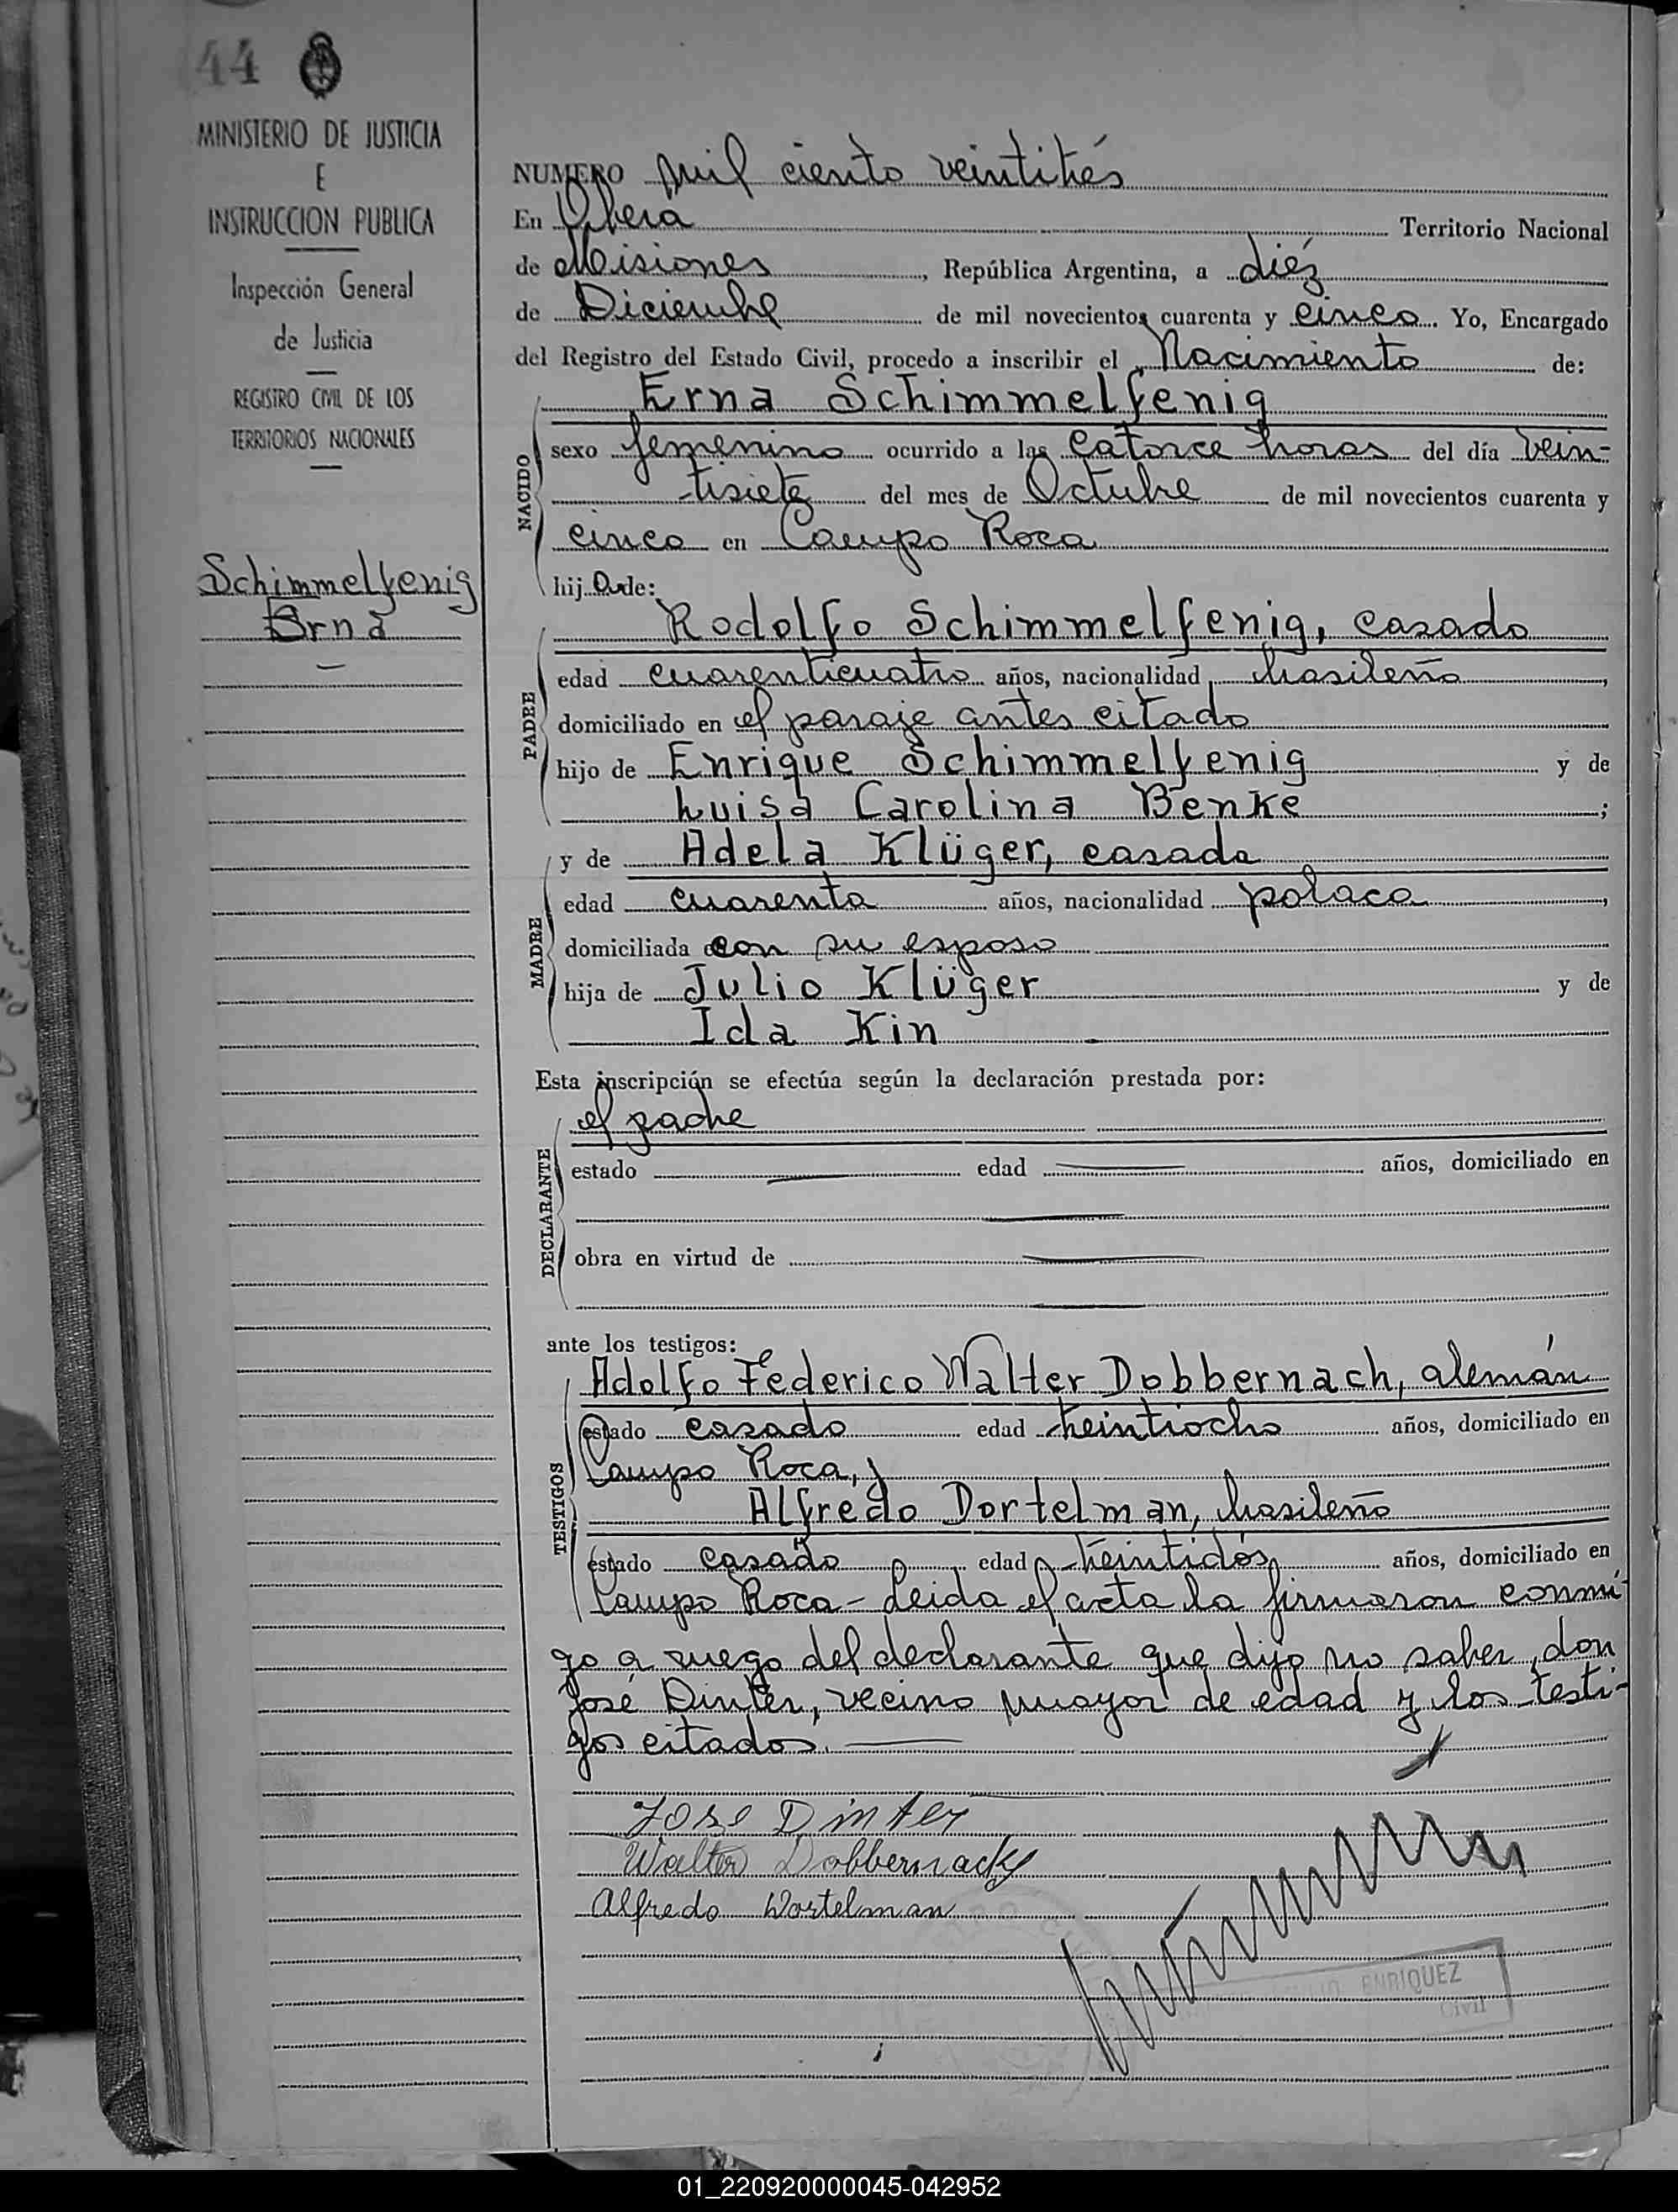 44
MINISTERIO DE JUSTICIA
E
INSTRUCCION PUBLICA
Inspección General
de Justicia
REGISTRO CIVIL DE LOS
TERRITORIOS NACIONALES
Schimmelfenig
Erna
NUMERO mil ciento veintitrés
En Obera Territorio Nacional
de Misiones, República Argentina, a diéz
de Diciembre de mil novecientos cuarenta y cinco. Yo, Encargado
del Registro del Estado Civil, procedo a inscribir el Nacimiento de:
Erna Schimmelfenig
NACIDO
sexo femenino ocurrido a las catorce horas del día vein-
tisiete del mes de Octubre de mil novecientos cuarenta y
cinco en Campo Roca
hij a de:
Rodolfo Schimmelfenig, casado
PADRE
edad cuarenticuatro años, nacionalidad brasileño,
domiciliado en el paraje antes citado
hijo de Enrique Schimmelfenig y de
Luisa Carolina Benke;
y de Adela Klüger, casada
MADRE
edad cuarenta años, nacionalidad polaca,
domiciliada con su esposo
hija de Julio Klüger y de
Ida Kin
Esta inscripción se efectúa según la declaración prestada por:
el padre
DECLARANTE
estado edad años, domiciliado en
obra en virtud de
ante los testigos:
Adolfo Federico Walter Dobbernach, alemán
TESTIGOS
estado casado edad treintiocho años, domiciliado en
Campo Roca, y
Alfredo Dortelman, brasileño
estado casado edad treintidós años, domiciliado en
Campo Roca - Leida el acta la firmaron conmi-
go a ruego del declarante que dijo no saber, don
José Dinter, vecino mayor de edad y los testi-
gos citados.
Jose Dinter
Walter Dobbernack
Alfredo Wortelman
ENRIQUEZ
Civil
01_220920000045-042952